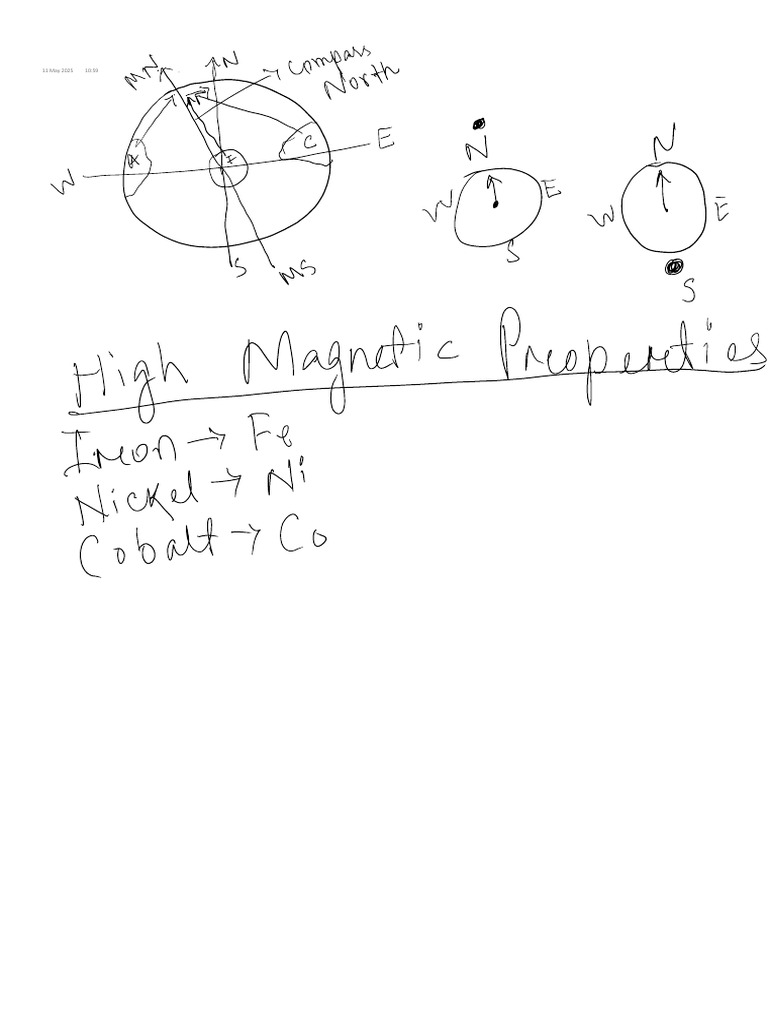 11 May 2025 10:59
MN
N
Compass
North
A
C
E
W
S
MS
N
W
E
S
N
W
E
S
High Magnetic Properties
Iron → Fe
Nickel → Ni
Cobalt → Co